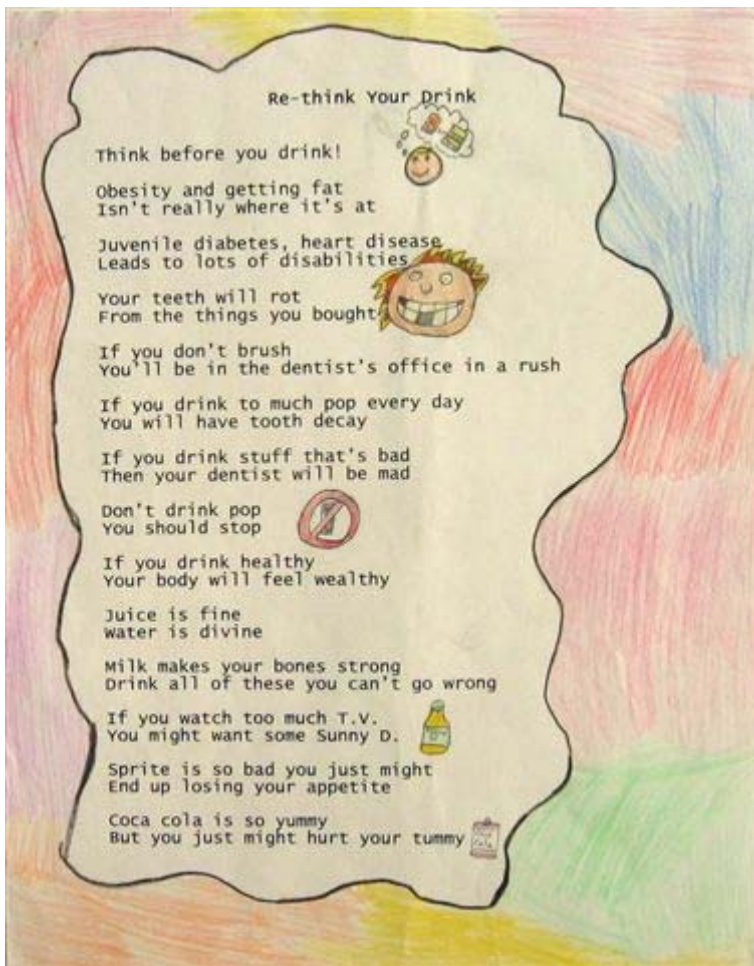 Re-think Your Drink
Think before you drink!
Obesity and getting fat
Isn't really where it's at
Juvenile diabetes, heart disease
Leads to lots of disabilities
Your teeth will rot
From the things you bought
If you don't brush
You'll be in the dentist's office in a rush
If you drink to much pop every day
You will have tooth decay
If you drink stuff that's bad
Then your dentist will be mad
Don't drink pop
You should stop
If you drink healthy
Your body will feel wealthy
Juice is fine
Water is divine
Milk makes your bones strong
Drink all of these you can't go wrong
If you watch too much T.V.
You might want some Sunny D.
Sprite is so bad you just might
End up losing your appetite
Coca cola is so yummy
But you just might hurt your tummy